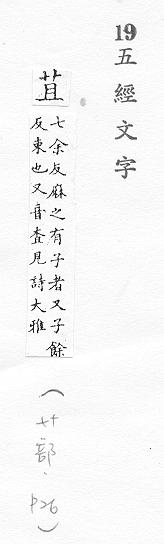 19五經文字
苴
七余反麻之有子者又子餘
反東也又音查見詩大雅
(艸部、P26)